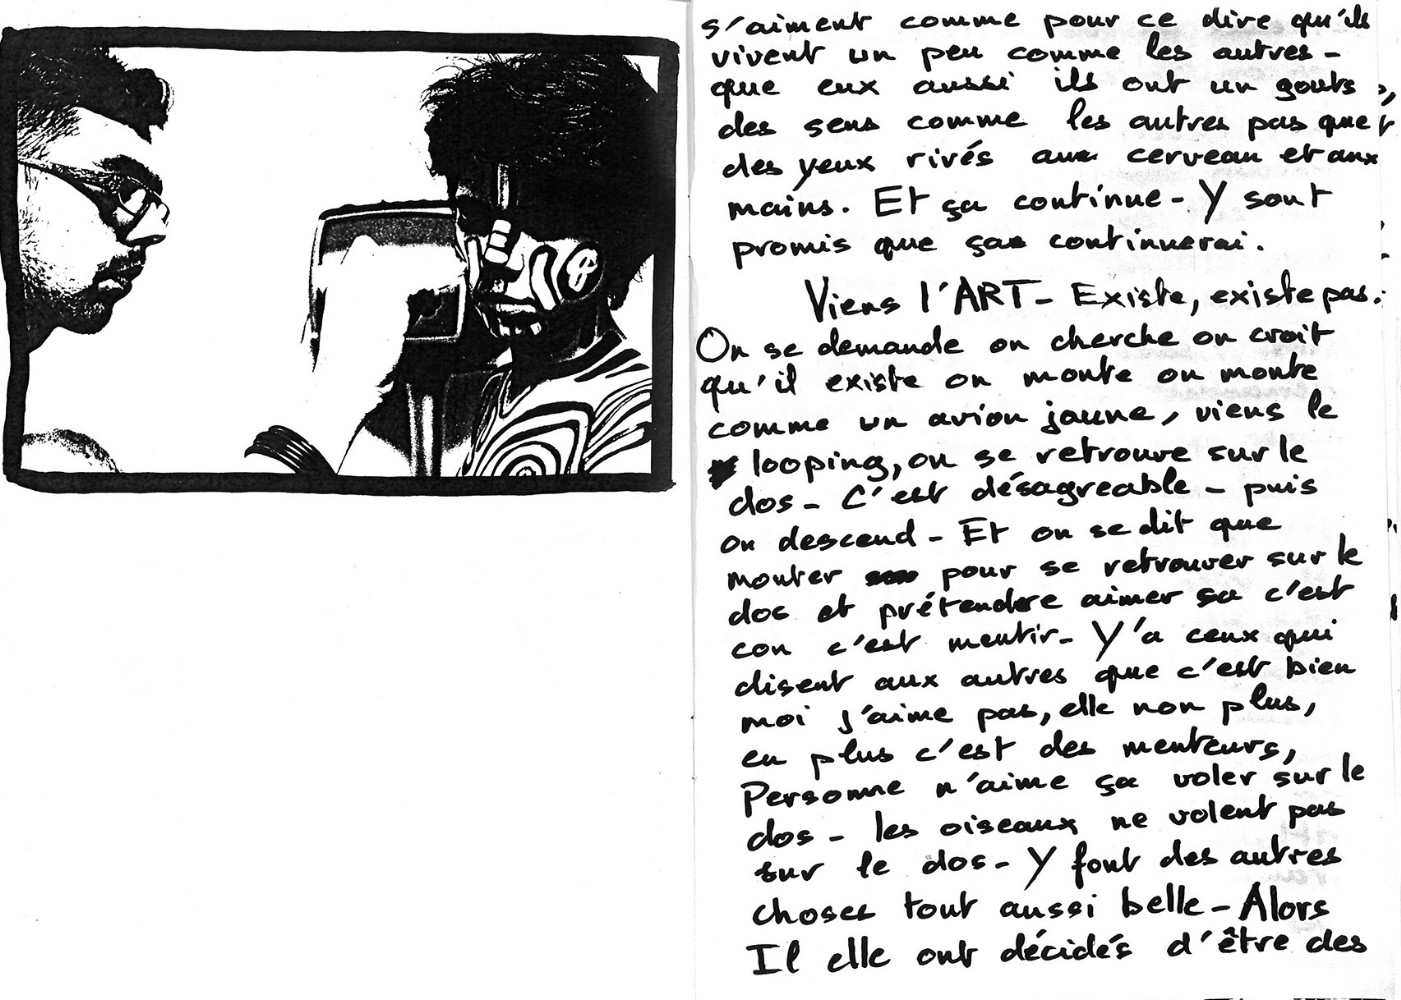 s'aiment comme pour ce dire qu'ils
vivent un peu comme les autres -
que eux aussi ils ont un gouts,
des sens comme les autres pas que
des yeux rivés aux cerveau et aux
mains. Et ça continue - Y sont
promis que ças continuerai.
Viens l'ART - Existe, existe pas.
On se demande on cherche on croit
qu'il existe on monte on monte
comme un avion jaune, viens le
looping, on se retrouve sur le
dos - C'est désagreable - puis
on descend - Et on se dit que
monter pour se retrouver sur le
dos et prétendre aimer sa c'est
con c'est mentir - Y'a ceux qui
disent aux autres que c'est bien
moi j'aime pas, elle non plus,
en plus c'est des menteurs,
Personne n'aime ça voler sur le
dos - les oiseaux ne volent pas
sur le dos - Y font des autres
choses tout aussi belle - Alors
Il elle ont décidés d'être des